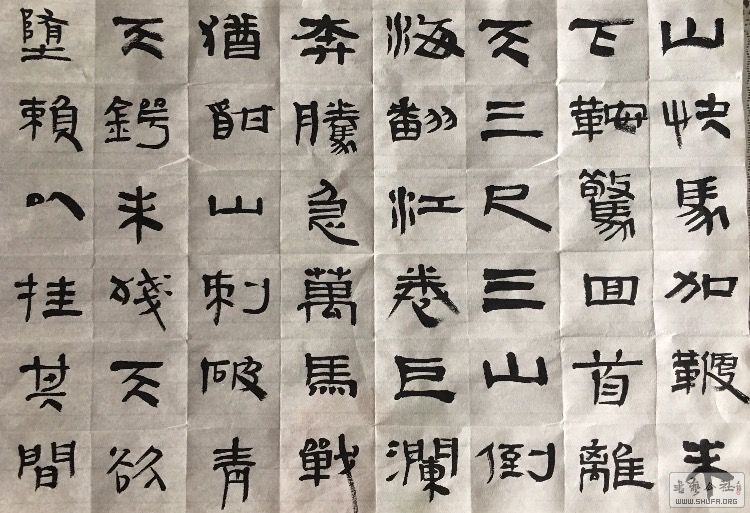 山快馬加鞭未
下鞍驚回首離
天三尺三山倒
海翻江卷巨瀾
奔騰急萬馬戰
猶酣山刺破青
天鍔未殘天欲
堕賴以挂其間
书艺公社
WWW.SHUFA.ORG